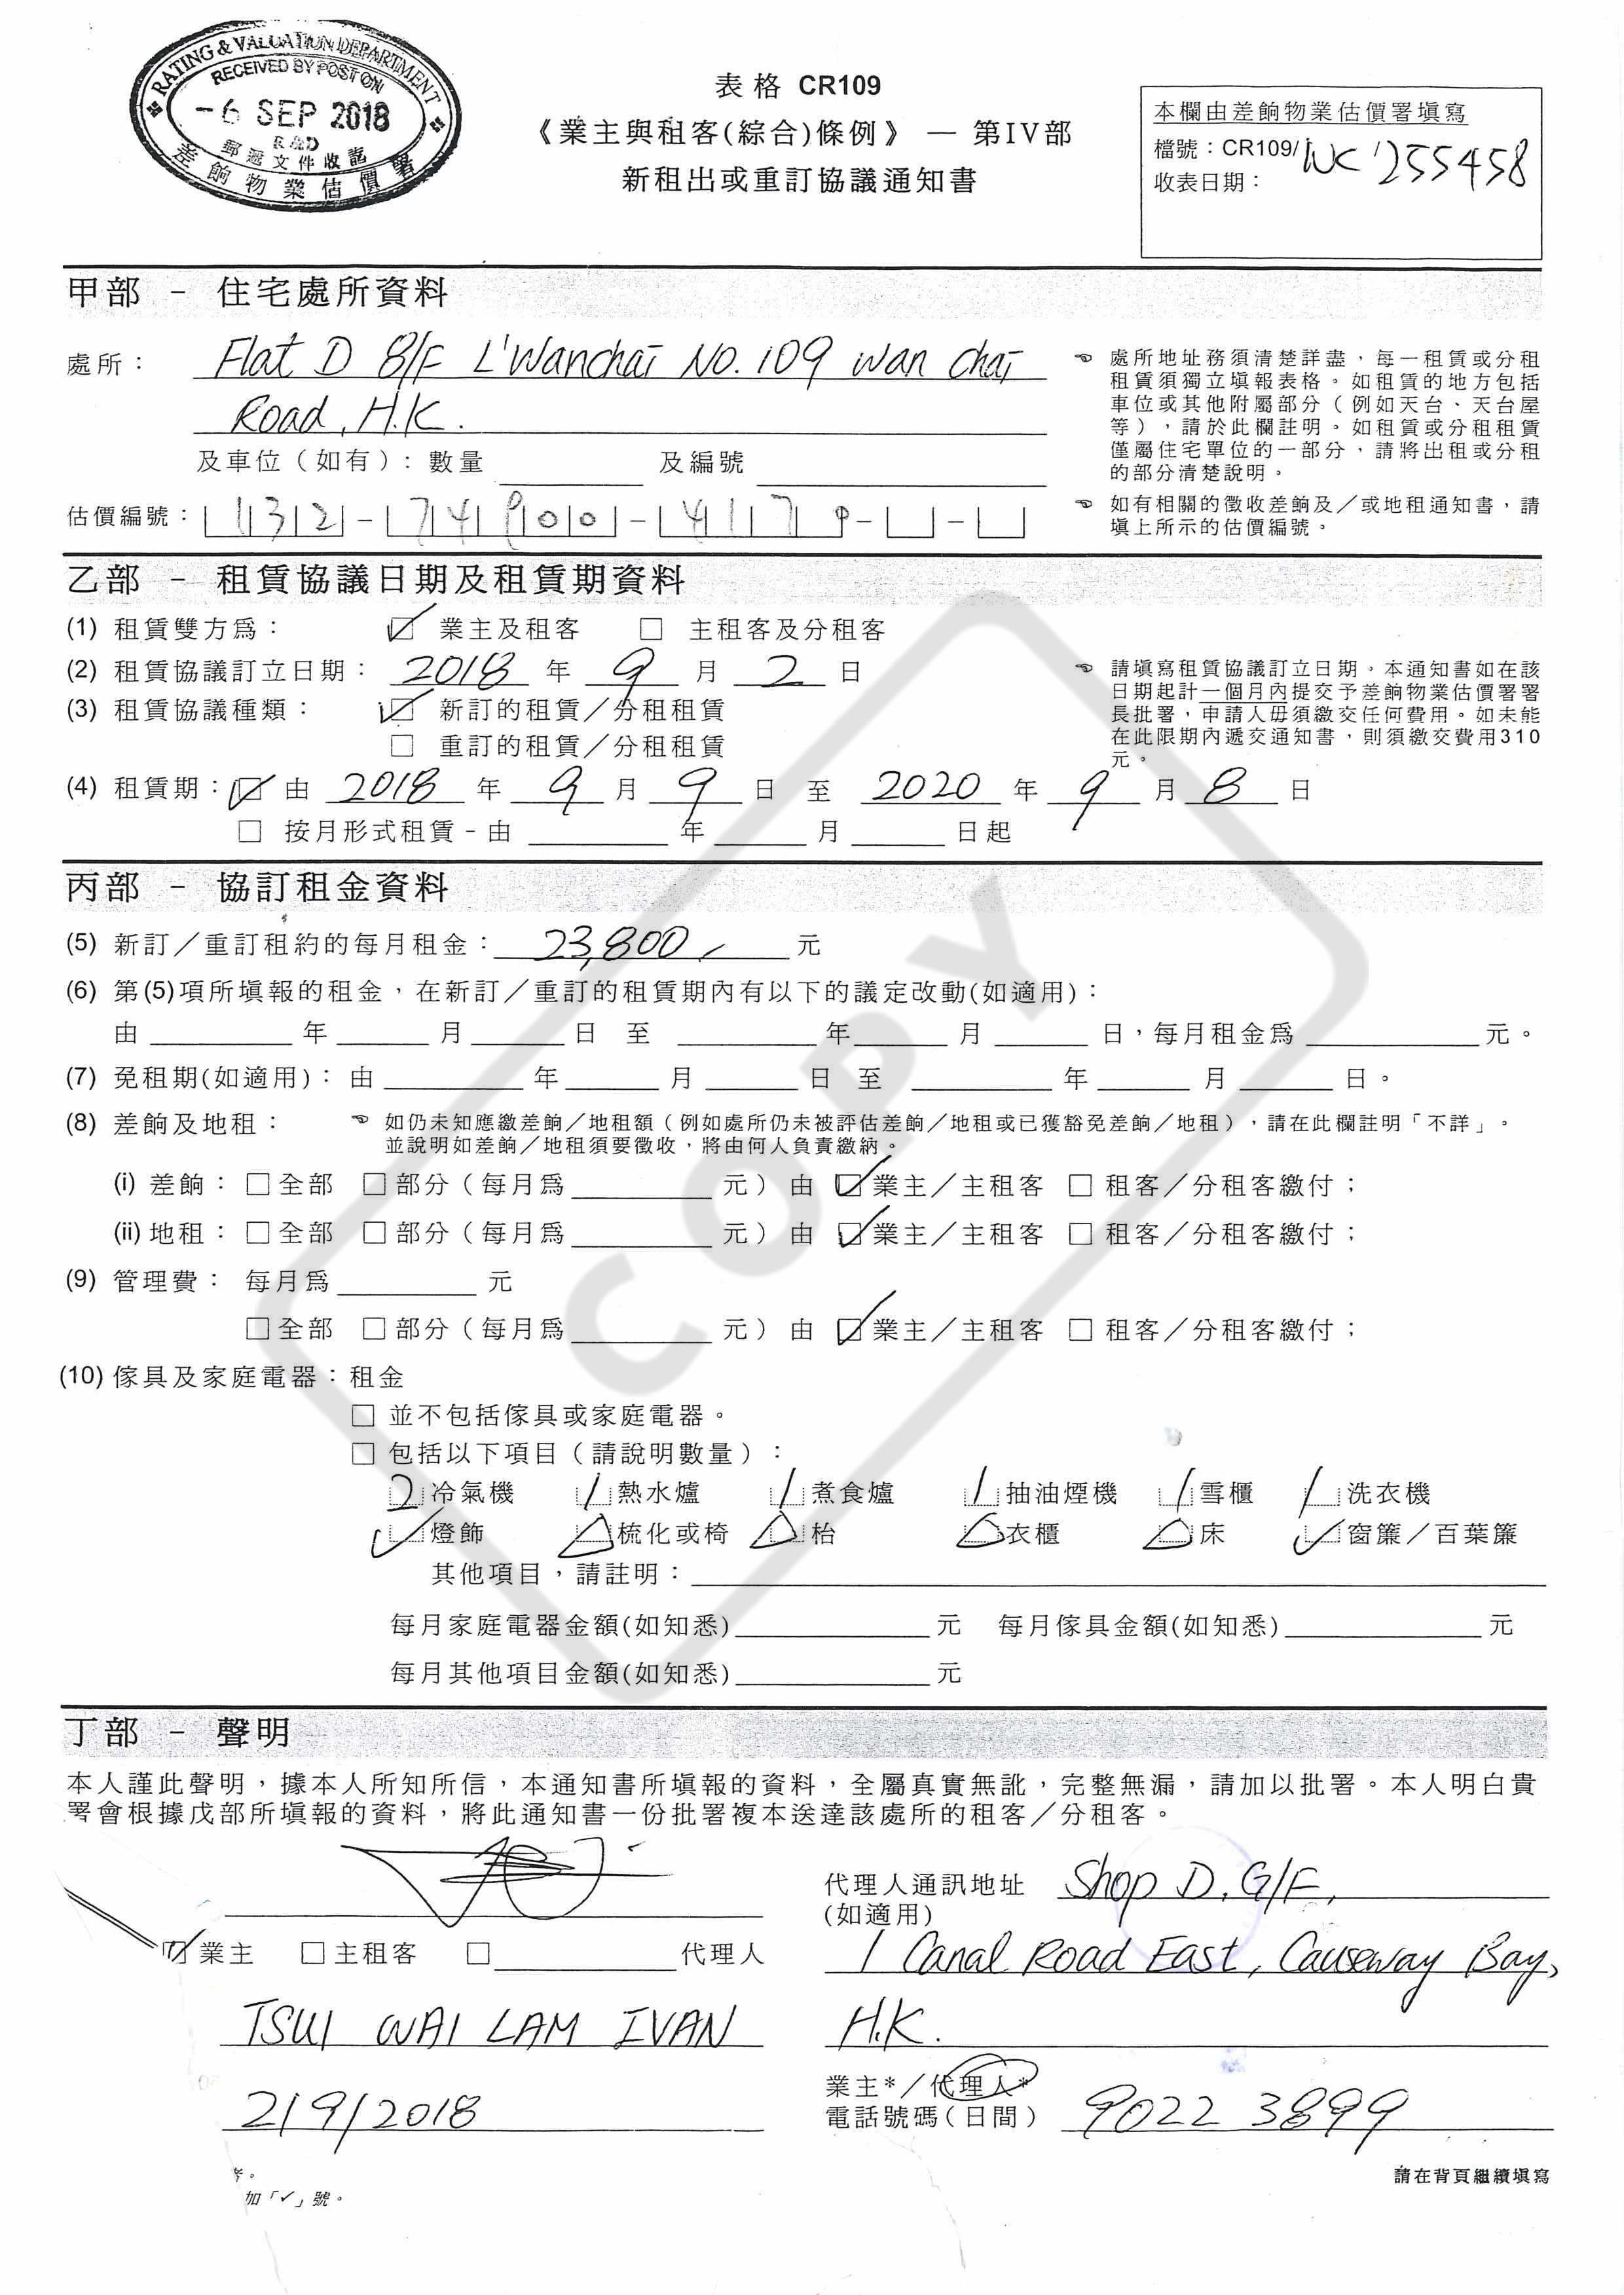 RATING & VALUATION DEPARTMENT
RECEIVED BY POST ON
-6 SEP 2018
R & D
郵遞文件收訖
差餉物業估價署
表格 CR109
《業主與租客(綜合)條例》 — 第IV部
新租出或重訂協議通知書
本欄由差餉物業估價署填寫
檔號：CR109/ WC/255458
收表日期：
甲部 - 住宅處所資料
處所： Flat D 8/F L'Wanchai No. 109 Wan Chai
Road, H.K.
及車位（如有）：數量 及編號
☜ 處所地址務須清楚詳盡，每一租賃或分租
租賃須獨立填報表格。如租賃的地方包括
車位或其他附屬部分（例如天台、天台屋
等），請於此欄註明。如租賃或分租租賃
僅屬住宅單位的一部分，請將出租或分租
的部分清楚說明。
估價編號：132-74900-4179- -
☜ 如有相關的徵收差餉及／或地租通知書，請
填上所示的估價編號。
乙部 - 租賃協議日期及租賃期資料
(1) 租賃雙方為： ☑ 業主及租客 □ 主租客及分租客
(2) 租賃協議訂立日期： 2018 年 9 月 2 日
(3) 租賃協議種類： ☑ 新訂的租賃／分租租賃
□ 重訂的租賃／分租租賃
☜ 請填寫租賃協議訂立日期。本通知書如在該
日期起計一個月內提交予差餉物業估價署署
長批署，申請人毋須繳交任何費用。如未能
在此限期內遞交通知書，則須繳交費用310
元。
(4) 租賃期：☑ 由 2018 年 9 月 9 日 至 2020 年 9 月 8 日
□ 按月形式租賃 - 由 年 月 日起
丙部 - 協訂租金資料
(5) 新訂／重訂租約的每月租金： 23,800 元
(6) 第(5)項所填報的租金，在新訂／重訂的租賃期內有以下的議定改動(如適用)：
由 年 月 日 至 年 月 日，每月租金為 元。
(7) 免租期(如適用)：由 年 月 日 至 年 月 日。
(8) 差餉及地租： ☜ 如仍未知應繳差餉／地租額（例如處所仍未被評估差餉／地租或已獲豁免差餉／地租），請在此欄註明「不詳」。
並說明如差餉／地租須要徵收，將由何人負責繳納。
(i) 差餉：□全部 □部分（每月為 元）由 ☑業主／主租客 □ 租客／分租客繳付；
(ii) 地租：□全部 □部分（每月為 元）由 ☑業主／主租客 □ 租客／分租客繳付；
(9) 管理費： 每月為 元
□全部 □部分（每月為 元）由 ☑業主／主租客 □ 租客／分租客繳付；
(10) 傢具及家庭電器：租金
□ 並不包括傢具或家庭電器。
□ 包括以下項目（請說明數量）：
2 冷氣機 1 熱水爐 1 煮食爐 1 抽油煙機 1 雪櫃 1 洗衣機
✓ 燈飾 △ 梳化或椅 △ 枱 △ 衣櫃 △ 床 ✓ 窗簾／百葉簾
其他項目，請註明：
每月家庭電器金額(如知悉) 元 每月傢具金額(如知悉) 元
每月其他項目金額(如知悉) 元
COPY
丁部 - 聲明
本人謹此聲明，據本人所知所信，本通知書所填報的資料，全屬真實無訛，完整無漏，請加以批署。本人明白貴
署會根據戊部所填報的資料，將此通知書一份批署複本送達該處所的租客／分租客。
☑ 業主 □ 主租客 □ 代理人
TSUI WAI LAM IVAN
2/9/2018
代理人通訊地址 Shop D, G/F,
(如適用)
1 Canal Road East, Causeway Bay,
H.K.
業主*／代理人*
電話號碼（日間） 9022 3899
加「✓」號。
請在背頁繼續填寫